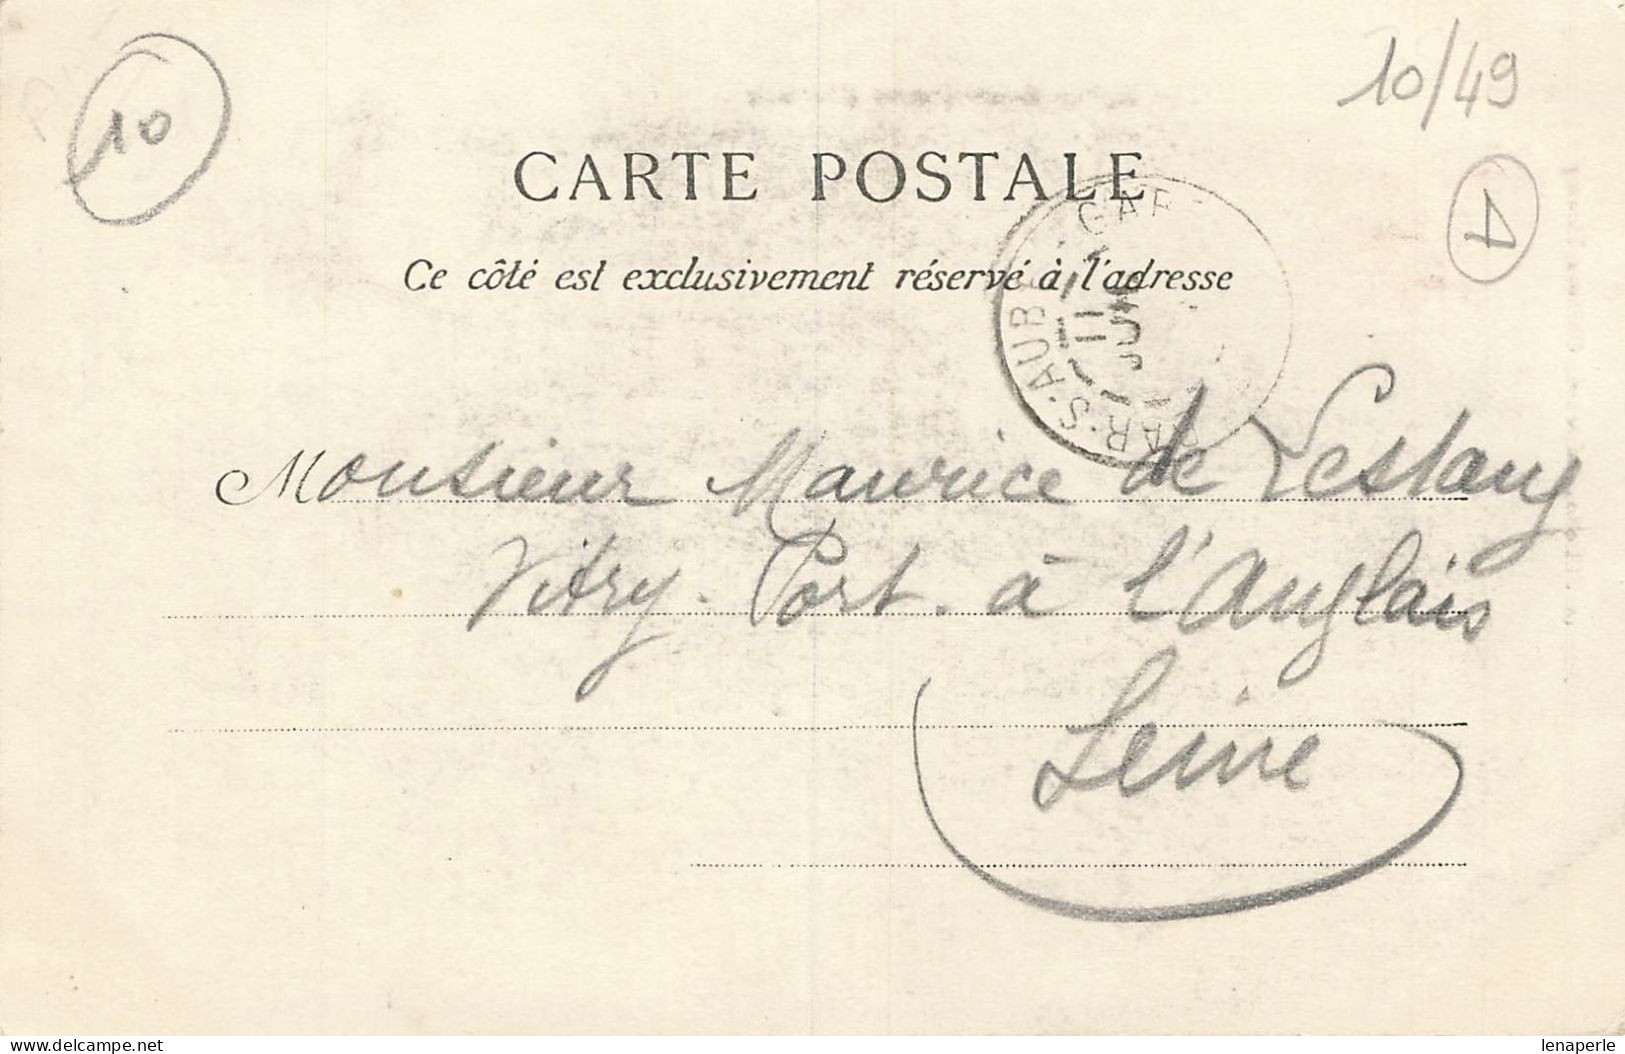 10
10/49
1
CARTE POSTALE
Ce côté est exclusivement réservé à l'adresse
GARE BAR-S-AUBE
Monsieur Maurice de Lestang
Vitry-Port-à l'Anglais
Seine
www.delcampe.net
lenaperle